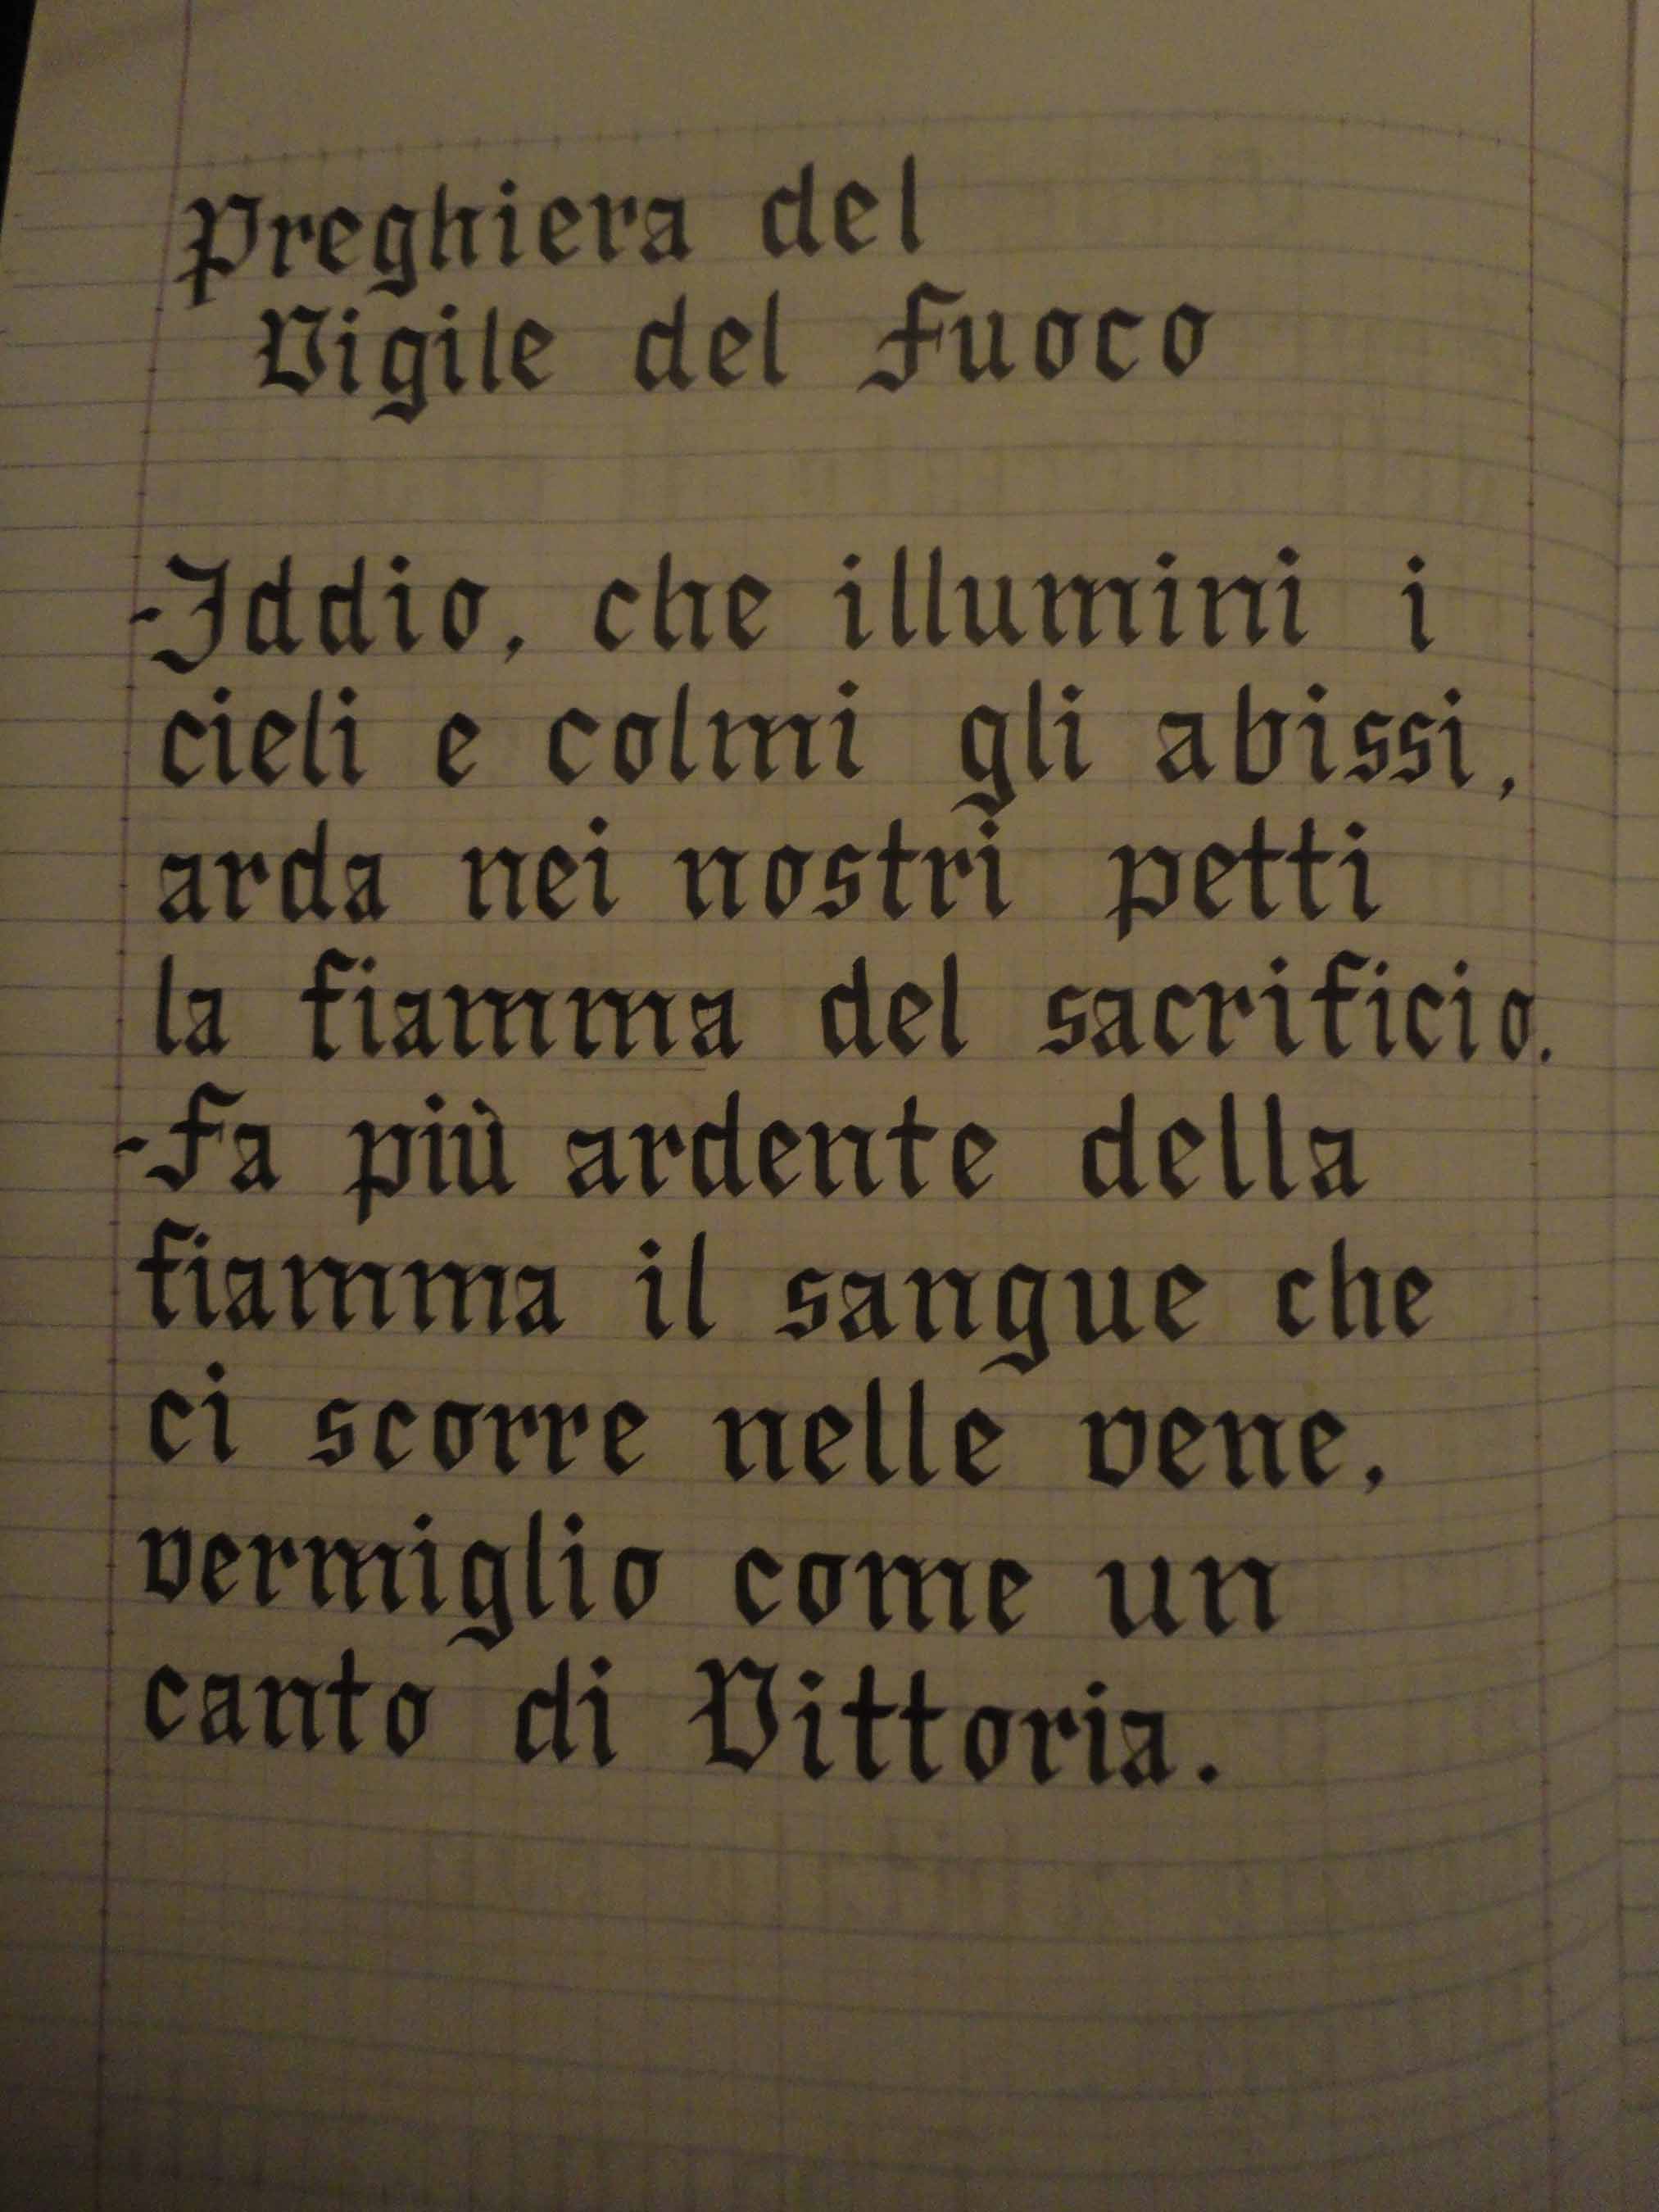 Preghiera del
Vigile del Fuoco
-Iddio, che illumini i
cieli e colmi gli abissi,
arda nei nostri petti
la fiamma del sacrificio.
-Fa più ardente della
fiamma il sangue che
ci scorre nelle vene,
vermiglio come un
canto di Vittoria.